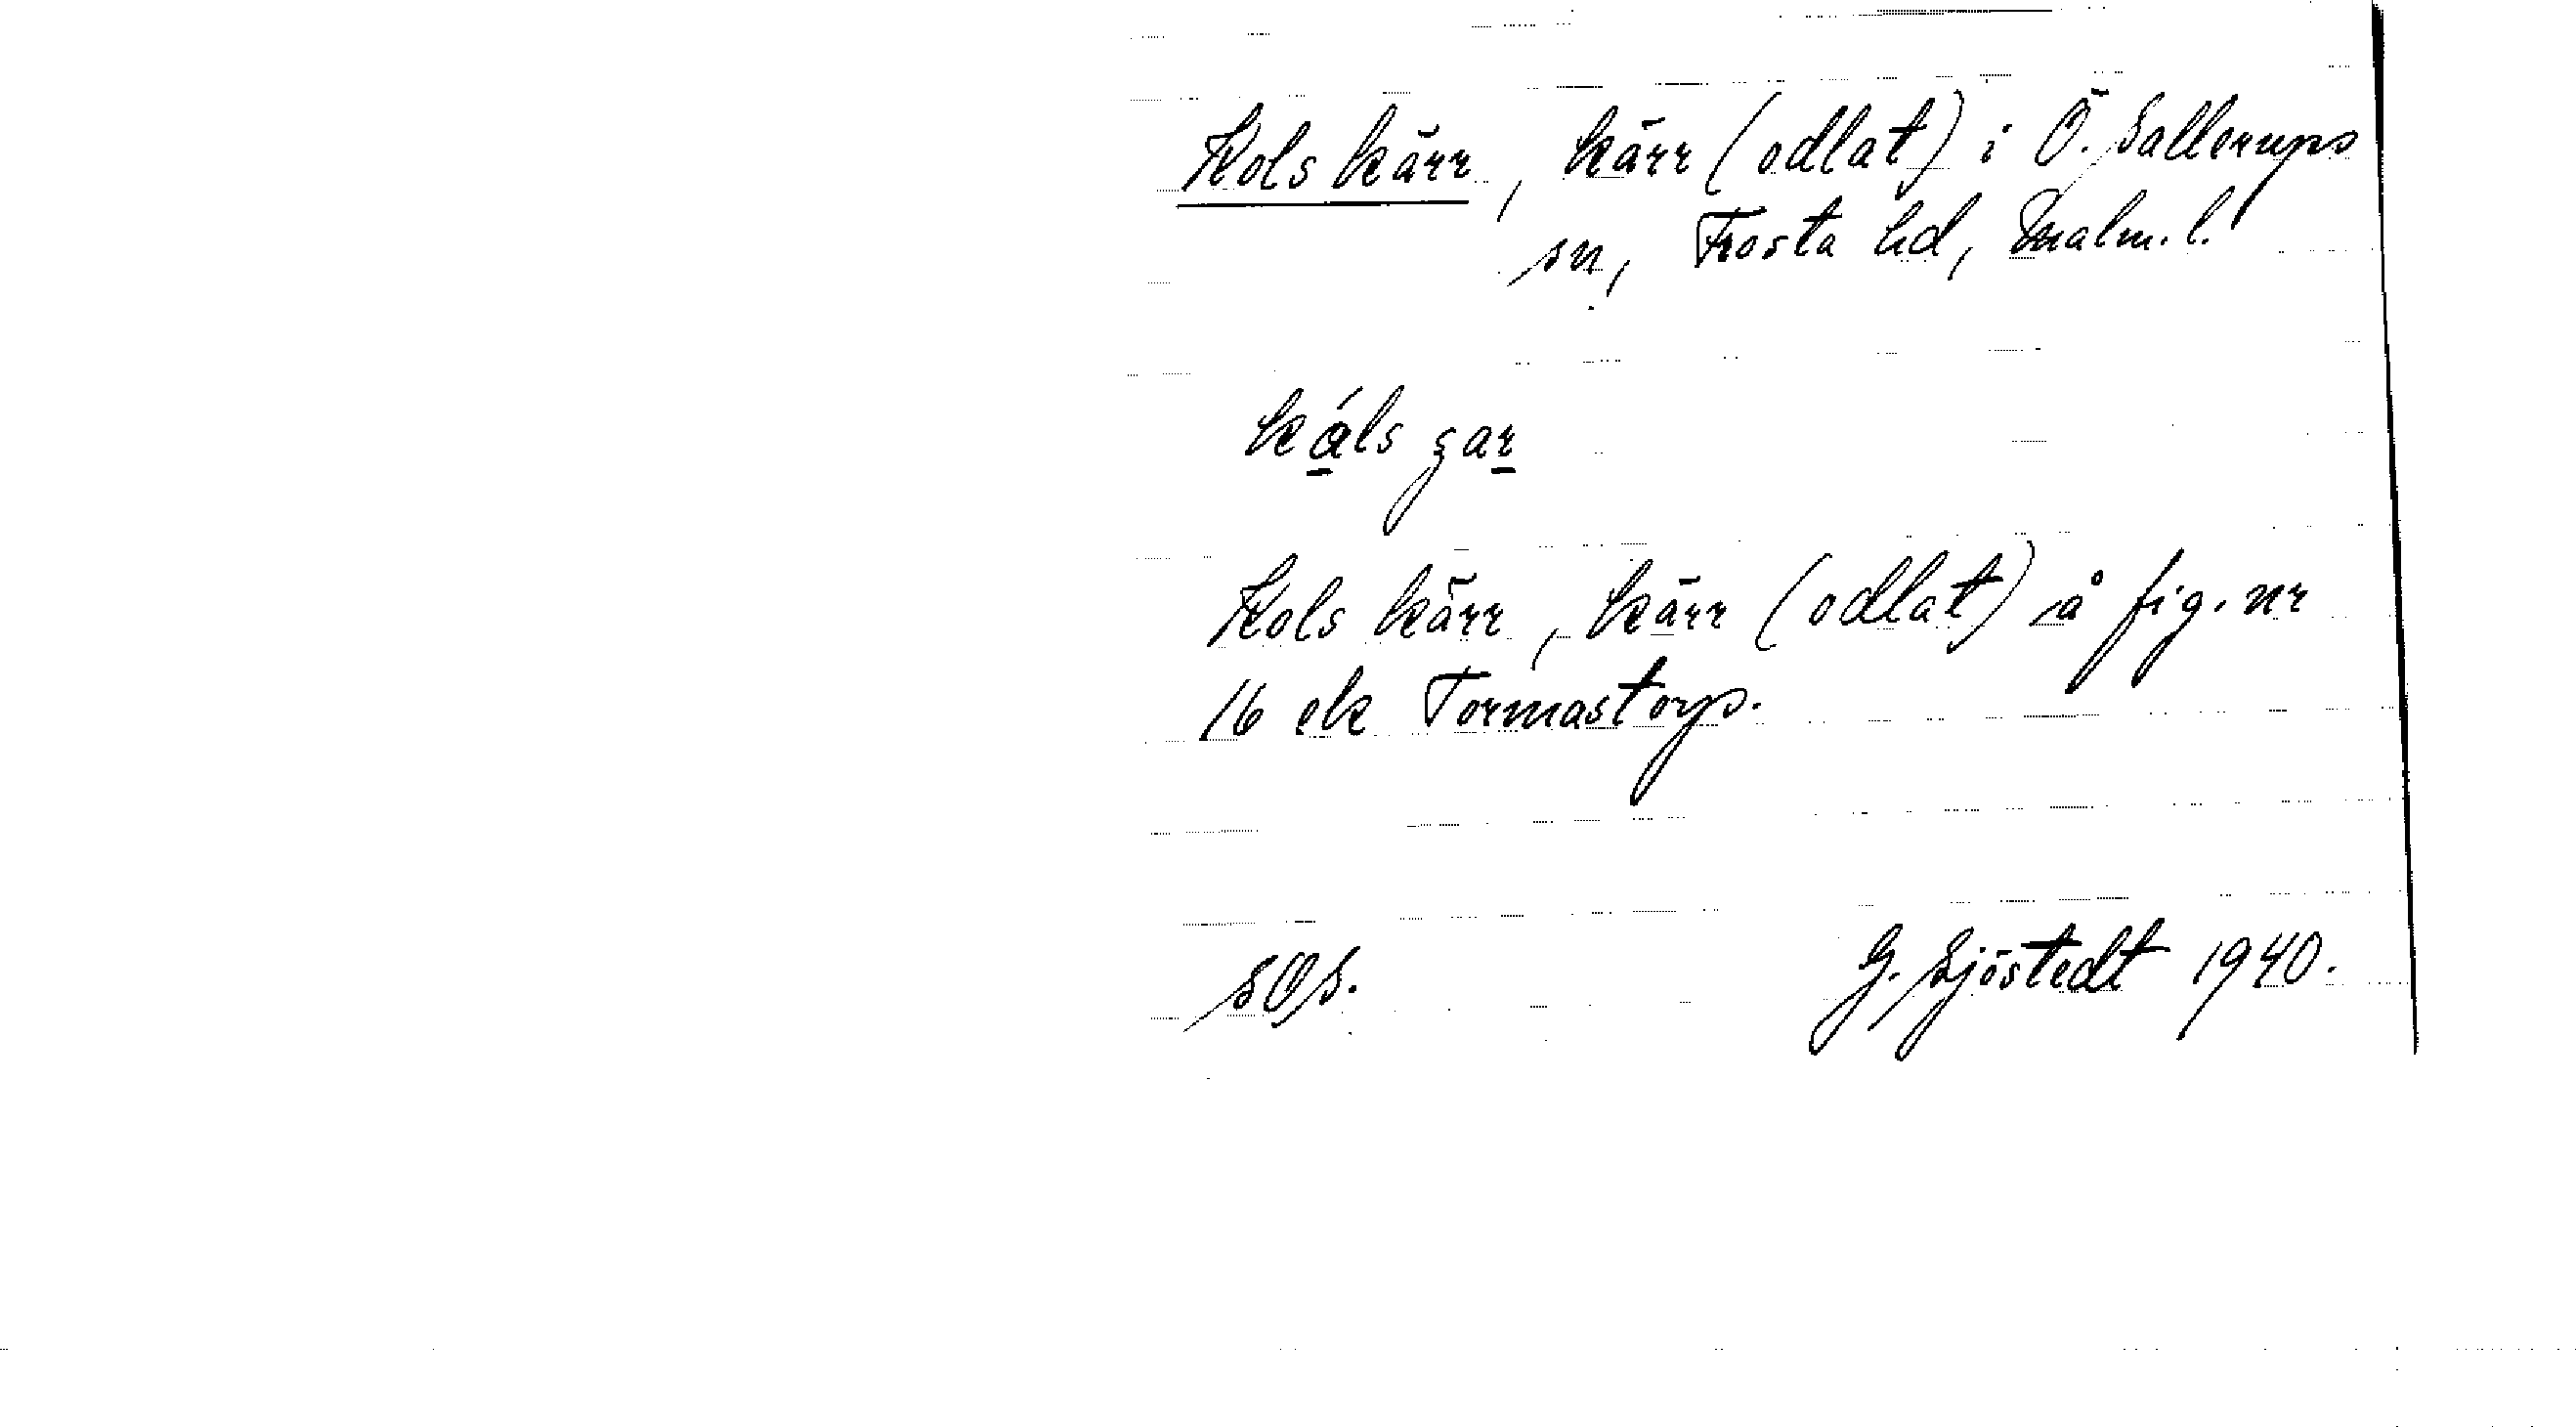 Kols kärr, kärr (odlat) i Ö. Sallerups
sn, Frosta hd, Malm. l.
Kols kärr, kärr (odlat) å fig. nr
16 ek Tormastorp.
SOS. G. Sjöstedt 1940.